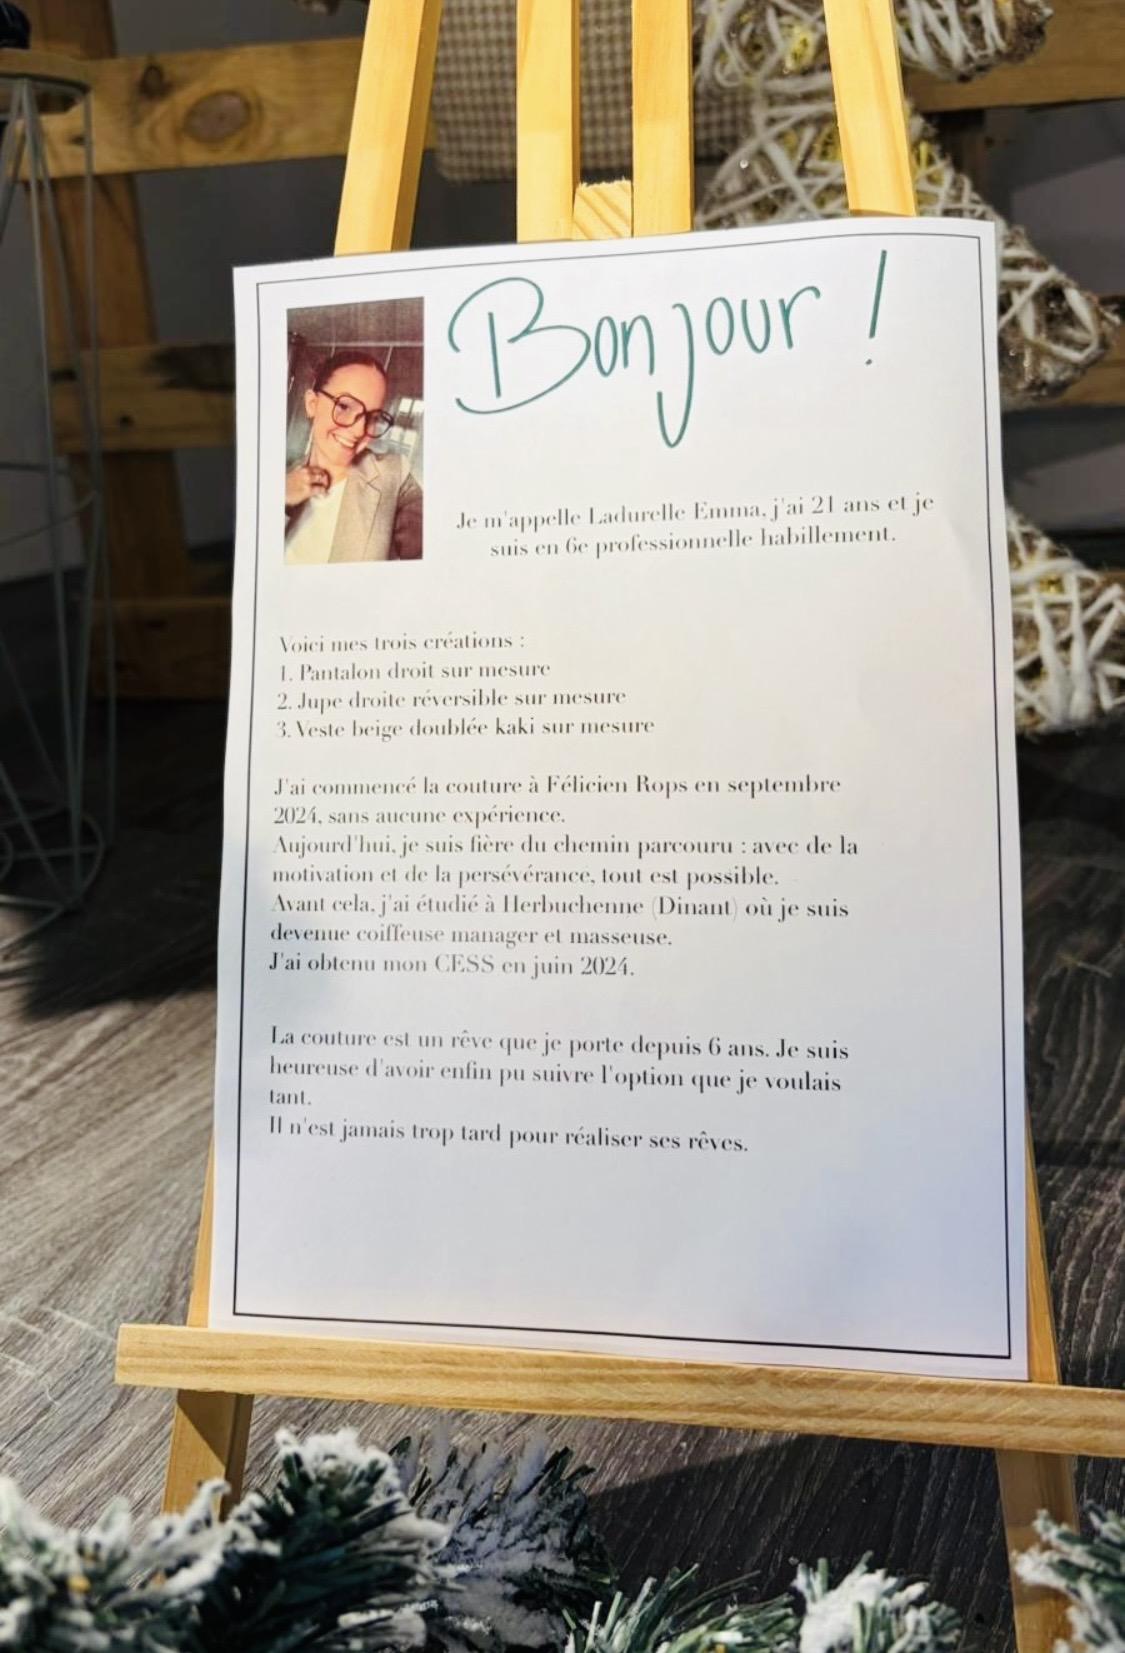 Bonjour !
Je m'appelle Ladurelle Emma, j'ai 21 ans et je
suis en 6e professionnelle habillement.
Voici mes trois créations :
1. Pantalon droit sur mesure
2. Jupe droite réversible sur mesure
3. Veste beige doublée kaki sur mesure
J'ai commencé la couture à Félicien Rops en septembre
2024, sans aucune expérience.
Aujourd'hui, je suis fière du chemin parcouru : avec de la
motivation et de la persévérance, tout est possible.
Avant cela, j'ai étudié à Herbuchenne (Dinant) où je suis
devenue coiffeuse manager et masseuse.
J'ai obtenu mon CESS en juin 2024.
La couture est un rêve que je porte depuis 6 ans. Je suis
heureuse d'avoir enfin pu suivre l'option que je voulais
tant.
Il n'est jamais trop tard pour réaliser ses rêves.